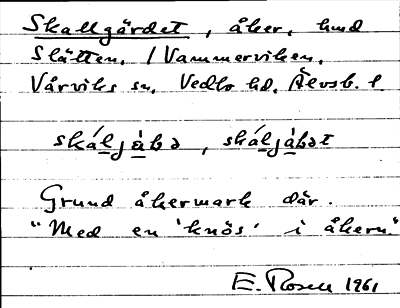 Skallgärdet, åker, hmd
Slätten, / Vammerviken,
Vårviks sn, Vedbo hd, Älvsb. l.
skáljàbə, skáljàbət
Grund åkermark där.
"Med en 'knös' i åkern."
E. Rosell 1961